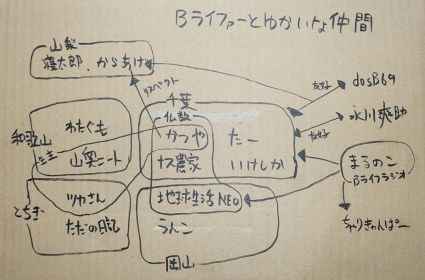 Bライファーとゆかいな仲間
山梨
寝太郎、からあげ
リスペクト
千葉
仏教
かつや
ナス農家
たー
いけしか
友好
dosB69
永川爽助
友好
和歌山
わたぐも
山奥ニート
生主
とちぎ
ツカさん
ただの日記
地球生活NEO
うんこ
岡山
まるのこ
Bライフラジオ
ちゃりきゃんぱー